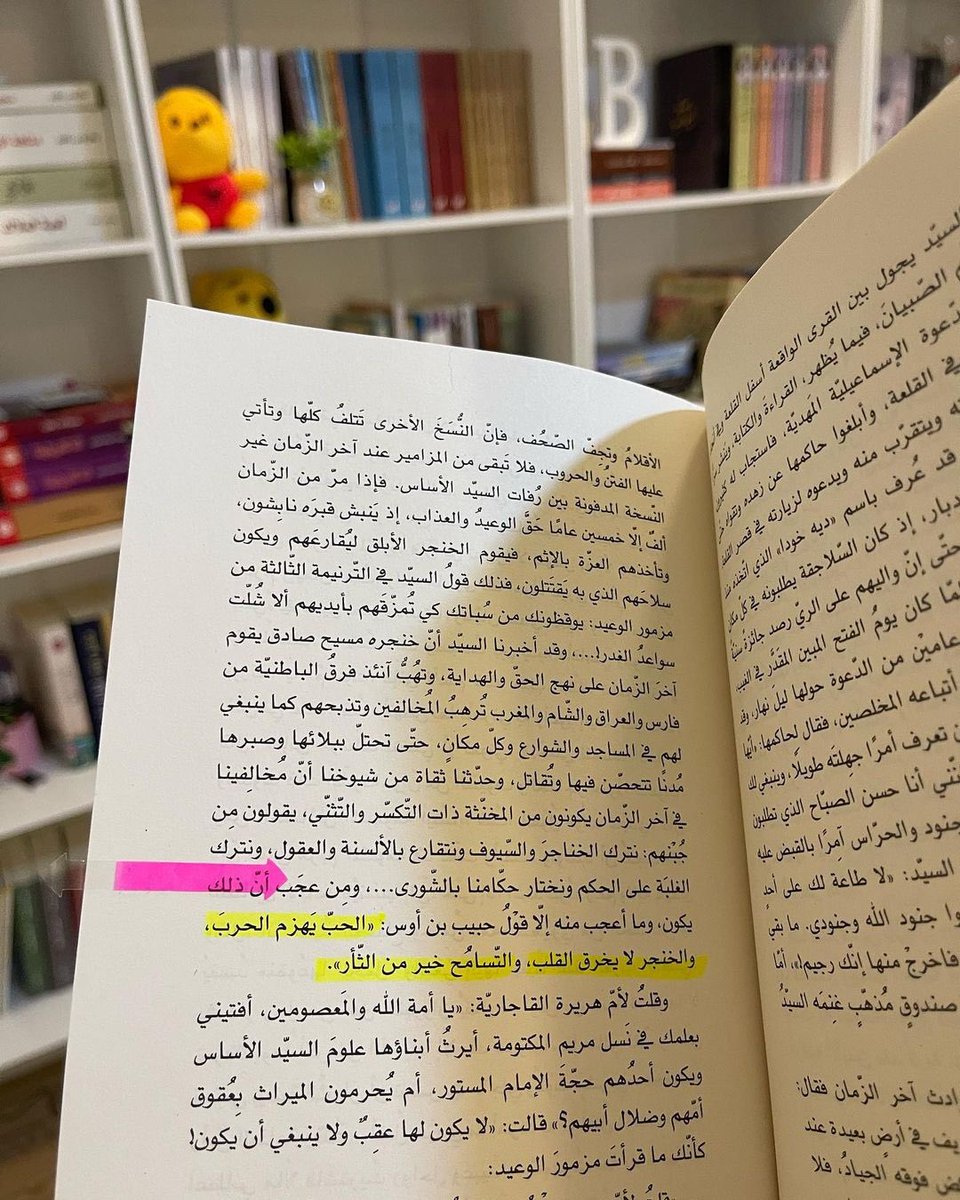 B
السيّد يجول بين القرى الواقعة أسفل القلعة
الصّبيانَ، فيما يُظهر، القراءةَ والكتابة،
الإسماعيليّة المَهديّة، فاستجاب له
في القلعة، وأبلغوا حاكمها عن زهده وتقواه
ويتقرّب منه ويدعوه لزيارته في قصر
قد عُرف باسم «ديه خودا» الذي اتخذه
إذ كان السّلاجقة يطلبونه في كلّ مكان
حتّى إنّ واليهم على الريّ رصد جائزة سنيّةً
كان يومُ الفتح المبين المقدَّر في الغيب
عامَيْن من الدّعوة حولها ليل نهار، وقد
أتباعه المخلصين، فقال لحاكمها: «أيّها
تعرف أمرًا جهلتَه طويلًا، وينبغي لك
أنا حسن الصبّاح الذي تطلبون
جنود والحرّاس آمِرًا بالقبض عليه
السيّد: «لا طاعة لك على أحدٍ
جنود الله وجنودي. ما بقي
فاخرجْ منها إنّك رجيم!»، أمّا
صندوقٍ مُذهّبٍ غنِمَه السيّدُ
آخر الزّمان فقال:
في أرضٍ بعيدة عند
فوقه الجيادُ، فلا
الأقلامُ وتجِفّ الصّحُف، فإنّ النُّسَخَ الأخرى تَتلفُ كلّها وتأتي
عليها الفتنُ والحروب، فلا تَبقى من المزامير عند آخر الزّمان غير
النّسخة المدفونة بين رُفات السيّد الأساس. فإذا مرّ من الزّمان
ألفٌ إلّا خمسين عامًا حَقَّ الوعيدُ والعذاب، إذ يَنبش قبرَه نابِشون،
وتأخذهم العزّة بالإثم، فيقوم الخنجر الأبلق ليُقارعَهم ويكون
سلاحَهم الذي به يَقتَتلون، فذلك قولُ السيّد في التّرنيمة الثّالثة من
مزمور الوعيد: يوقظونك من سُباتك كي تُمزّقَهم بأيديهم ألا شُلّت
سواعدُ الغدر!...، وقد أخبرنا السيّد أنّ خنجره مسيح صادق يقوم
آخرَ الزّمان على نهج الحقّ والهداية، وتهُبُّ آنئذ فرقُ الباطنيّة من
فارس والعراق والشّام والمغرب تُرهبُ المُخالفين وتذبحهم كما ينبغي
لهم في المساجد والشوارع وكلّ مكانٍ، حتّى تحتلّ ببلائها وصبرها
مُدنًا تتحصّن فيها وتُقاتل، وحدّثنا ثقاة من شيوخنا أنّ مُخالِفِينا
في آخر الزّمان يكونون من المخنّثة ذات التّكسّر والتّثنّي، يقولون مِن
جُبْنهم: نترك الخناجرَ والسّيوف ونتقارع بالألسنة والعقول، ونترك
الغلبَة على الحكم ونختار حكّامنا بالشّورى...، ومِن عجَب أنّ ذلك
يكون، وما أعجب منه إلّا قوْلُ حبيب بن أوس: «الحبّ يَهزم الحربَ،
والخنجر لا يخرق القلب، والتّسامُح خير من الثّأر».
وقلتُ لأمّ هريرة القاجاريّة: «يا أمة الله والمَعصومين، أفتيني
بعلمك في نَسل مريم المكتومة، أيرثُ أبناؤها علومَ السيّد الأساس
ويكون أحدُهم حجّةَ الإمام المستور، أم يُحرمون الميراث بِعُقوق
أمّهم وضلال أبيهم؟» قالت: «لا يكون لها عقِبٌ ولا ينبغي أن يكون!
كأنّك ما قرأتَ مزمورَ الوعيد: